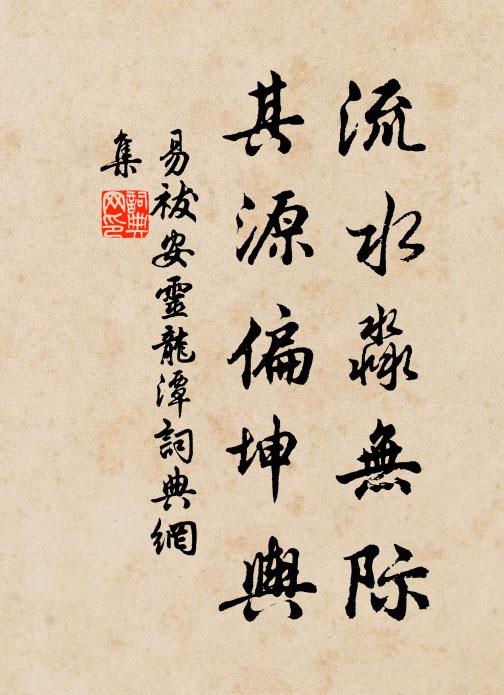 流水淼無际
其源偏坤輿
易祓安靈龍潭詞典網
集
詞典
网印